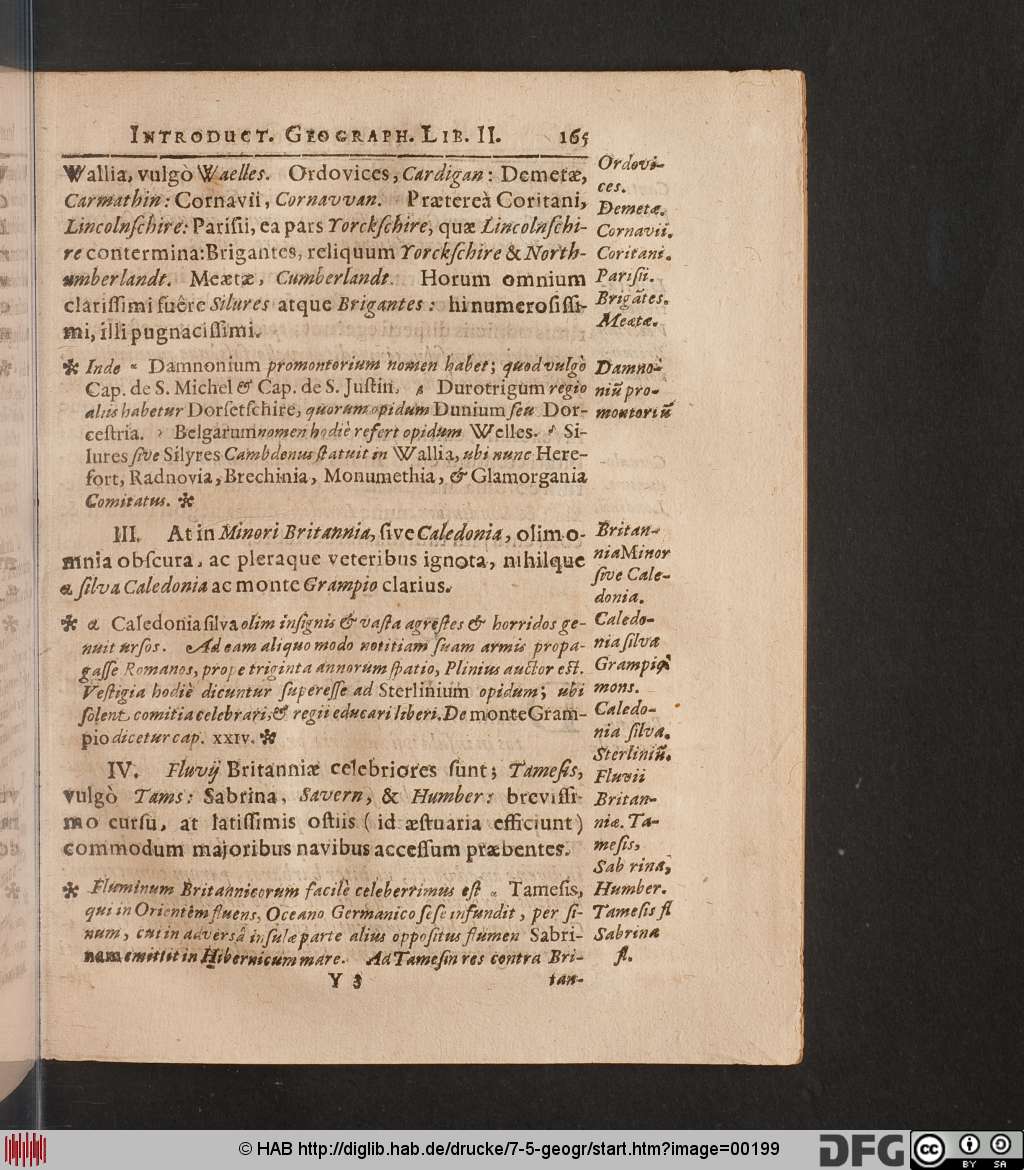 INTRODUCT. GEOGRAPH. LIB. II. 165
Wallia, vulgò Waelles. Ordovices, Cardigan: Demetæ,
Carmathin: Cornavii, Cornavvan. Prætereà Coritani,
Lincolnſchire: Pariſii, ea pars Yorckſchire, quæ Lincolnſchi-
re contermina: Brigantes, reliquum Yorckſchire & North-
umberlandt. Meætæ, Cumberlandt. Horum omnium
clariſſimi fuêre Silures atque Brigantes: hi numeroſiſſi-
mi, illi pugnaciſſimi.
* Inde Damnonium promontorium nomen habet; quod vulgò
Cap. de S. Michel & Cap. de S. Juſtin. Durotrigum regio
aliis habetur Dorſetſchire, quorum opidum Dunium ſeu Dor-
ceſtria. Belgarum nomen hodiè refert opidum Welles. Si-
lures ſive Silyres Cambdenus ſtatuit in Wallia, ubi nunc Here-
fort, Radnovia, Brechinia, Monumethia, & Glamorgania
Comitatus. *
III. At in Minori Britannia, ſive Caledonia, olim o-
mnia obſcura, ac pleraque veteribus ignota, nihilque
a ſilva Caledonia ac monte Grampio clarius.
* a Caledonia ſilva olim inſignis & vaſta agreſtes & horridos ge-
nuit urſos. Ad eam aliquo modo notitiam ſuam armis propa-
gaſſe Romanos, prope triginta annorum ſpatio, Plinius auctor eſt.
Veſtigia hodiè dicuntur ſupereſſe ad Sterlinium opidum; ubi
ſolent comitia celebrari, & regii educari liberi. De monte Gram-
pio dicetur cap. XXIV. *
IV. Fluvij Britanniæ celebriores ſunt; Tameſis,
vulgò Tams: Sabrina, Savern, & Humber: breviſſi-
mo curſu, at latiſſimis oſtiis (id æſtuaria efficiunt)
commodum majoribus navibus acceſſum præbentes.
* Fluminum Britannicorum facilè celeberrimus eſt Tameſis,
qui in Orientêm fluens, Oceano Germanico ſeſe infundit, per ſi-
num, cui in adversâ inſulæ parte alius oppoſitus flumen Sabri-
nam emittit in Hibernicum mare. Ad Tameſin res contra Bri-
Y 3 tan-
Ordovi-
ces.
Demetæ.
Cornavii.
Coritani.
Pariſii.
Brigātes.
Meætæ.
Damno-
niū pro-
montoriū
Britan-
nia Minor
ſive Cale-
donia.
Caledo-
nia ſilva
Grampiꝰ
mons.
Caledo-
nia ſilva.
Sterliniū.
Fluvii
Britan-
niæ. Ta-
meſis,
Sabrina,
Humber.
Tameſis fl
Sabrina
fl.
© HAB http://diglib.hab.de/drucke/7-5-geogr/start.htm?image=00199
DFG
cc
BY SA